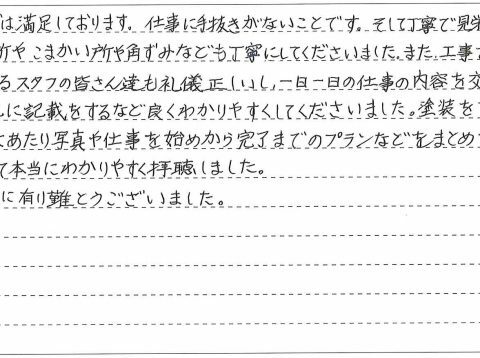 は満足しております。仕事に手抜きがないことです。そして丁寧で見
所や こまかい所や角ずみなども丁寧にしてくださいました。また、工事
るスタッフの皆さん達も礼儀正しいし、一日一日の仕事の内容を
に記載をするなど良くわかりやすくしてくださいました。塗装を
あたり写真や仕事を始めから完了までのプランなどをまとめ
て本当にわかりやすく拝聴しました。
に有り難とうございました。